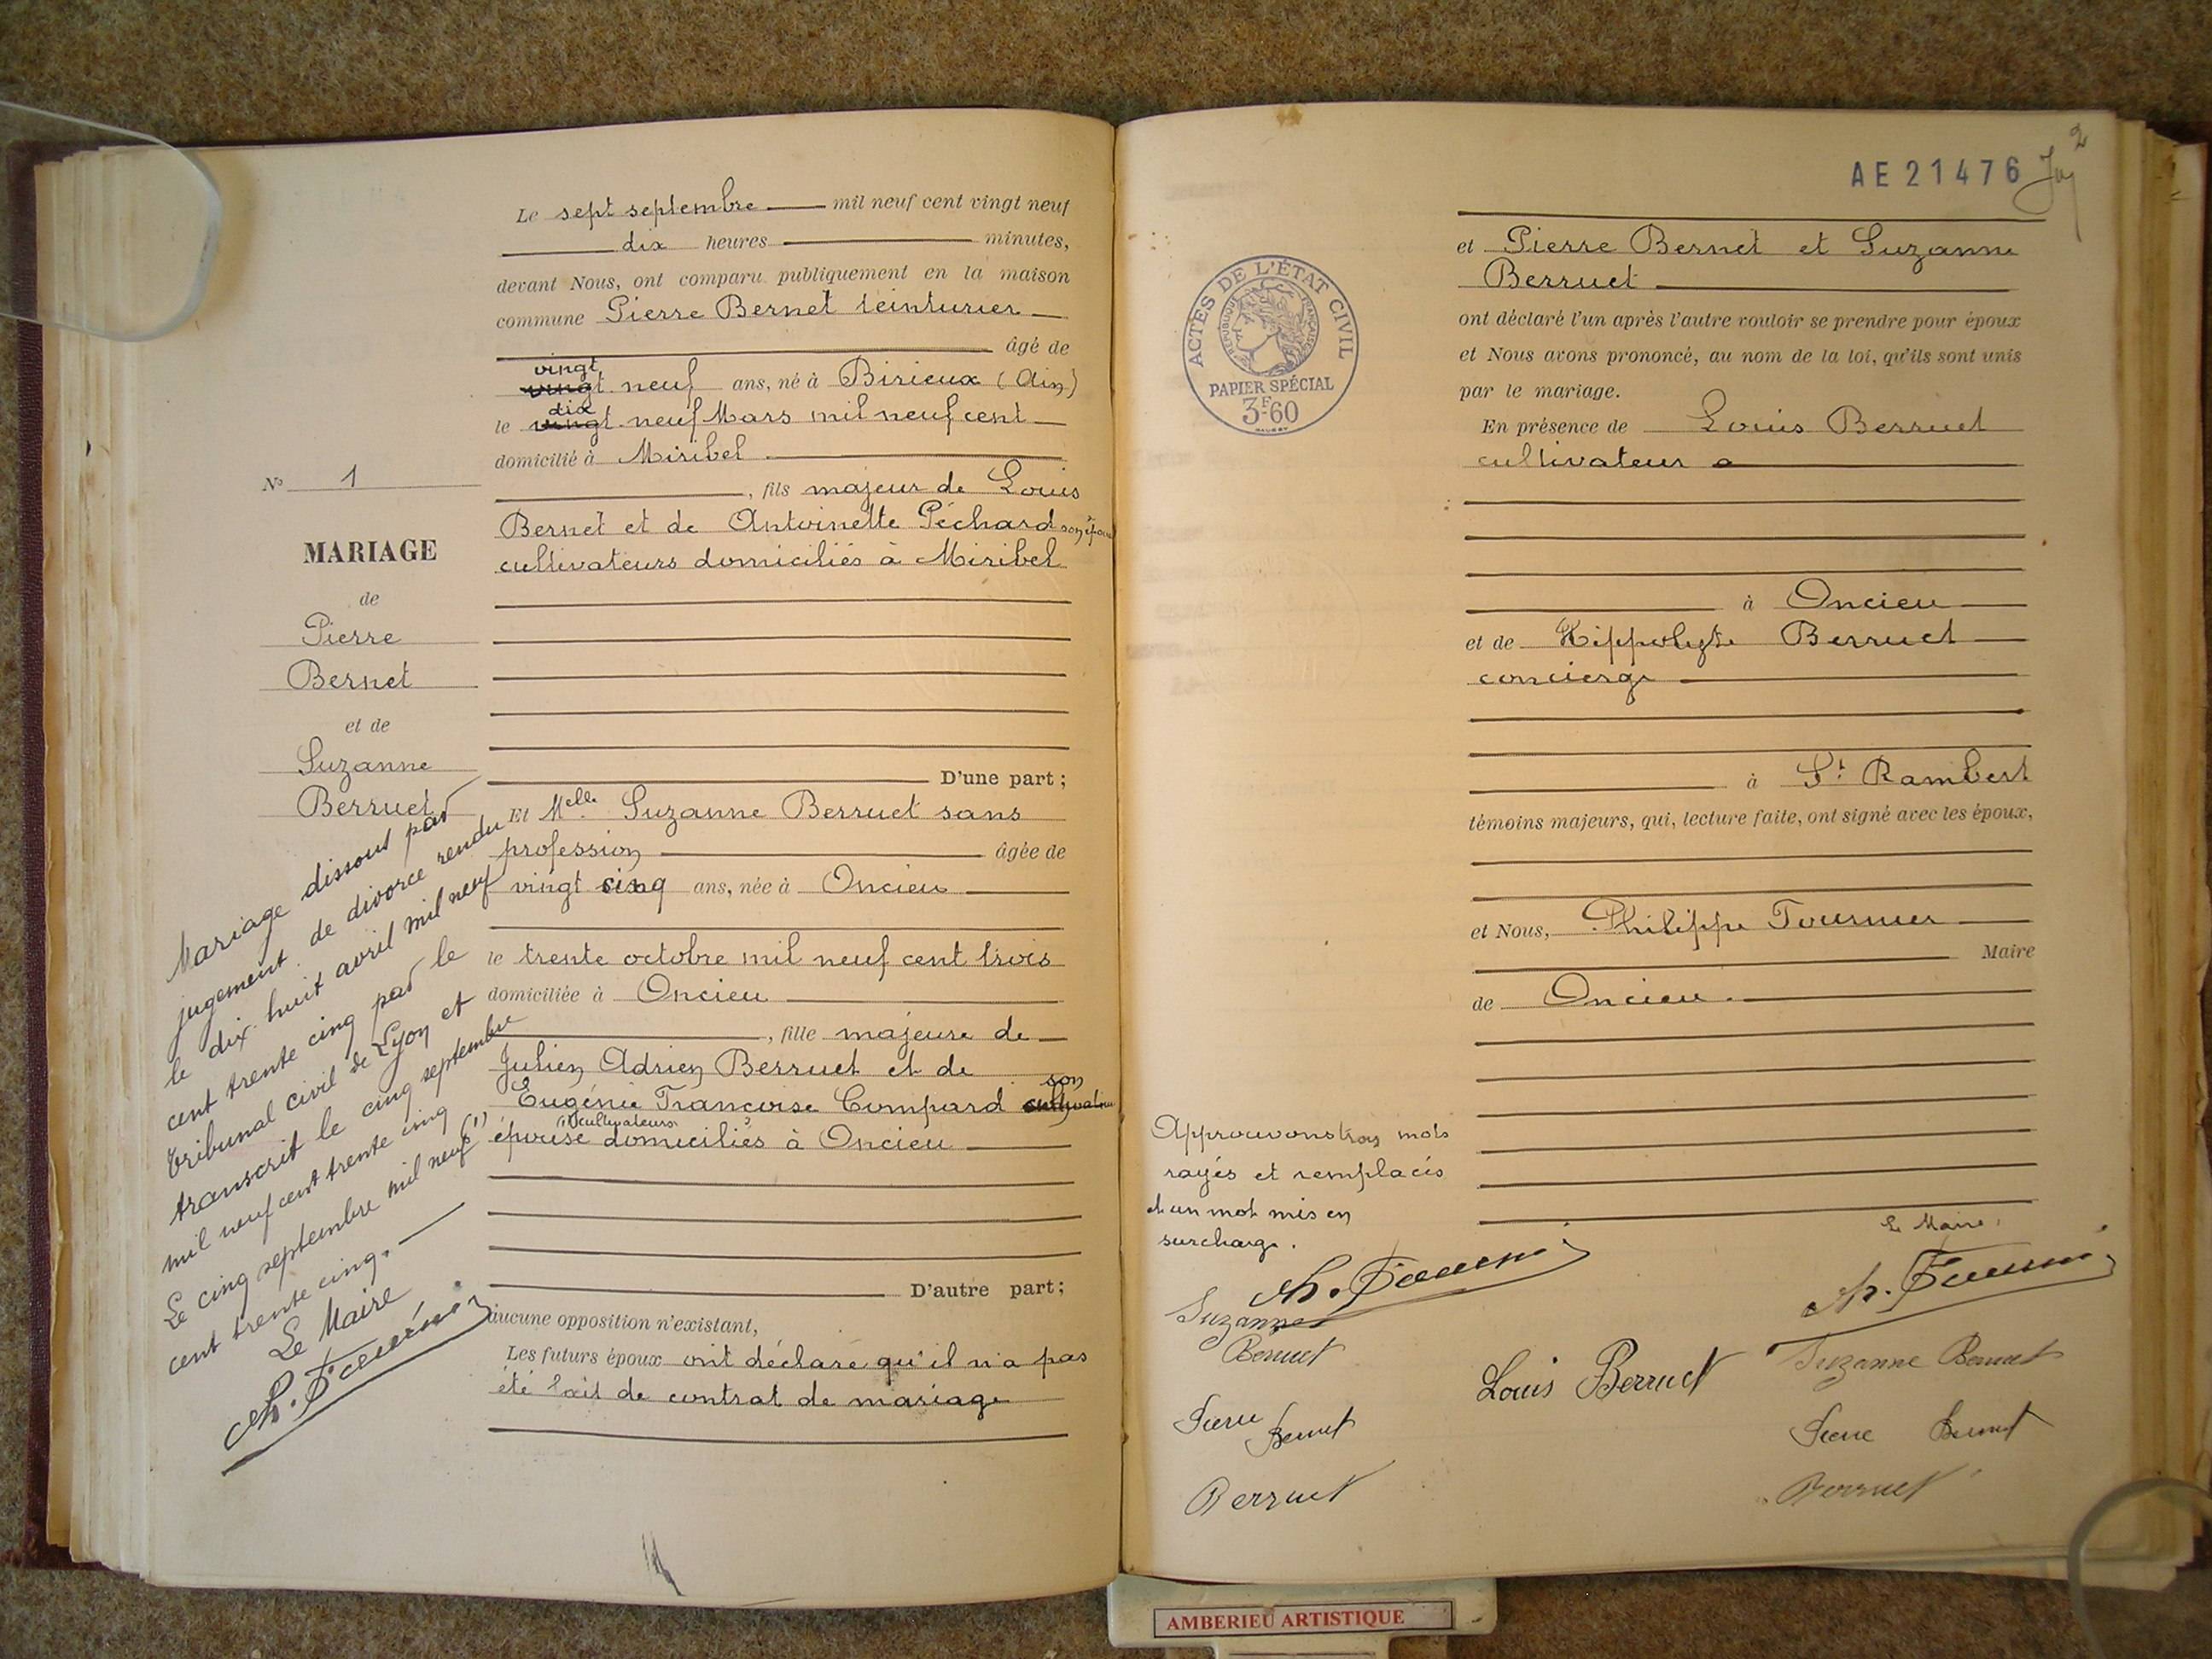 Le sept septembre mil neuf cent vingt neuf
dix heures minutes,
devant Nous, ont comparu publiquement en la maison
commune Pierre Bernet teinturier
âgé de
vingt
vingt neuf ans, né à Birieux (Ain)
dix
le vingt neuf Mars mil neuf cent
domicilié à Miribel
, fils majeur de Louis
Bernet et de Antoinette Péchard son épouse
cultivateurs domiciliés à Miribel
D'une part ;
Et Melle Suzanne Berruet sans
profession âgée de
vingt cinq ans, née à Oncieu
le trente octobre mil neuf cent trois
domiciliée à Oncieu
, fille majeure de
Julien Adrien Berruet et de
son
Eugénie Françoise Compard cultivateurs
(1) cultivateurs
épouse domiciliés à Oncieu
D'autre part ;
aucune opposition n'existant,
Les futurs époux ont déclaré qu'il n'a pas
été fait de contrat de mariage
No 1
MARIAGE
de
Pierre
Bernet
et de
Suzanne
Berruet
Mariage dissout par
jugement de divorce rendu
le dix huit avril mil neuf
cent trente cinq par le
tribunal civil de Lyon et
transcrit le cinq septembre
mil neuf cent trente cinq
Le cinq septembre mil neuf (1)
cent trente cinq.
Le Maire
AE 21476
2
et Pierre Bernet et Suzanne
Berruet
ont déclaré l'un après l'autre vouloir se prendre pour époux
et Nous avons prononcé, au nom de la loi, qu'ils sont unis
par le mariage.
En présence de Louis Berruet
cultivateur
à Oncieu
et de Hippolyte Berruet
concierge
à St Rambert
témoins majeurs, qui, lecture faite, ont signé avec les époux,
et Nous, Philippe Tournier
Maire
de Oncieu.
ACTES DE L'ÉTAT CIVIL
RÉPUBLIQUE FRANÇAISE
PAPIER SPÉCIAL
3F60
Approuvons trois mots
rayés et remplacés
et un mot mis en
surcharge.
Suzanne
Berruet
Pierre Bernet
Berruet
Louis Berruet
Le Maire,
Suzanne Berruet
Pierre Bernet
Berruet
AMBERIEU ARTISTIQUE